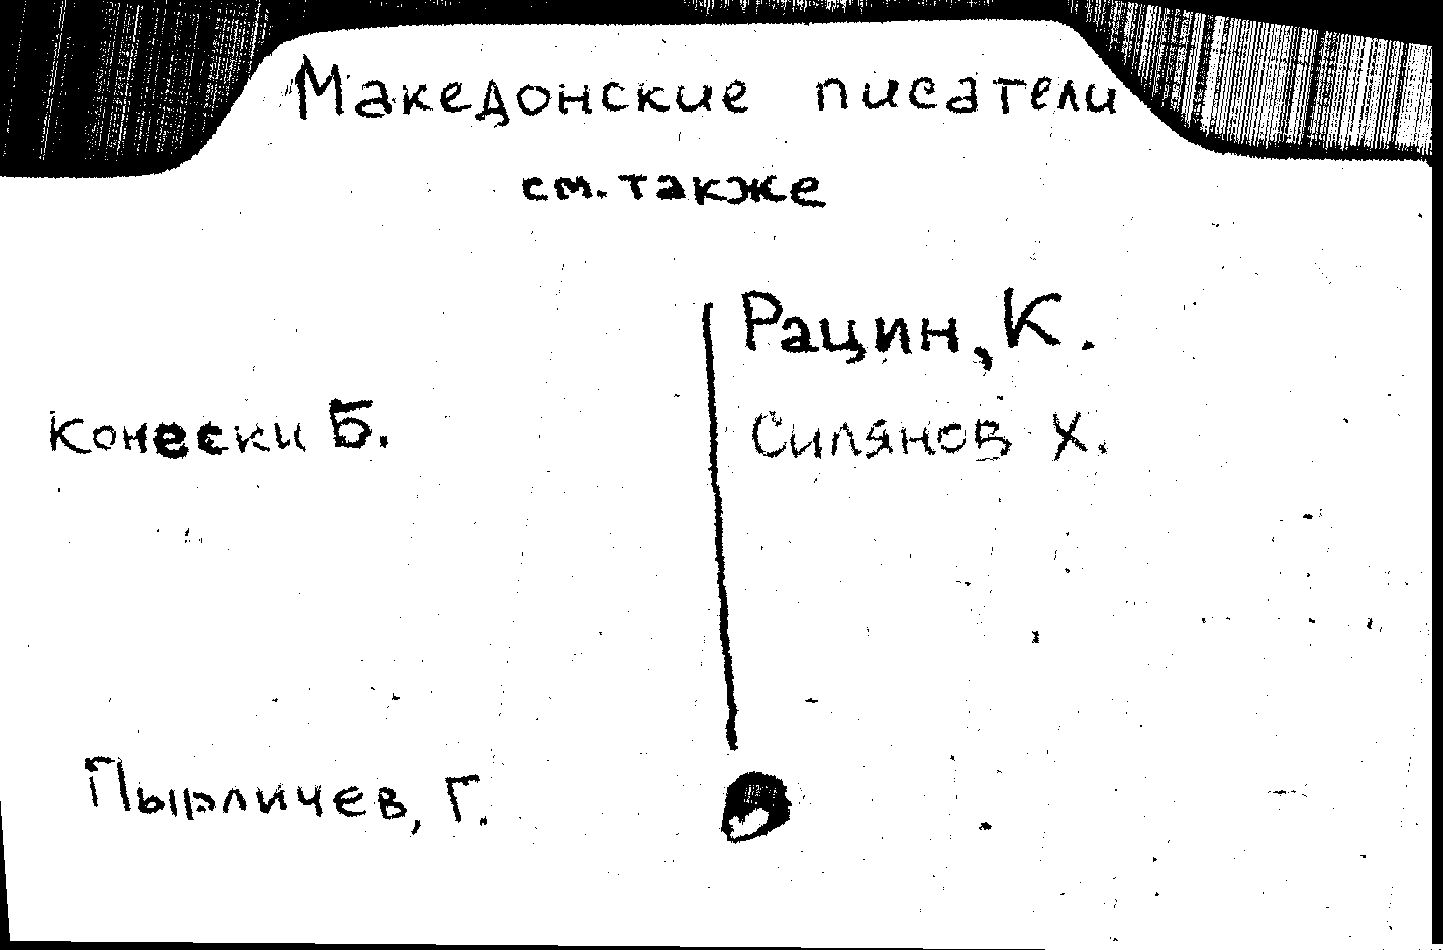 Македонские писатели
см. также
Конески Б.
Пырличев, Г.
Рацин, К.
Силянов Х.